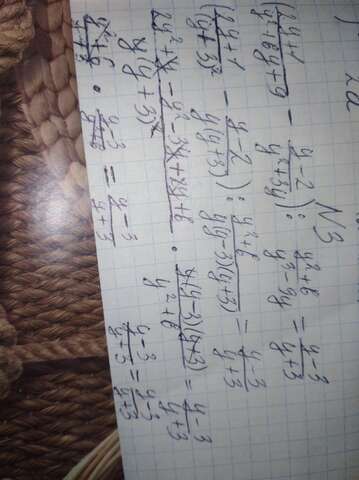 N3
(2y+1/y²+6y+9 - y-2/y²+3y) : y²+6/y³-9y = y-3/y+3
(2y+1/(y+3)² - y-2/y(y+3)) : y²+6/y(y-3)(y+3) = y-3/y+3
2y²+y-y²-3y+2y+6/y(y+3)² · y(y-3)(y+3)/y²+6 = y-3/y+3
y²+6/y+3 · y-3/y²+6 = y-3/y+3
y-3/y+3 = y-3/y+3